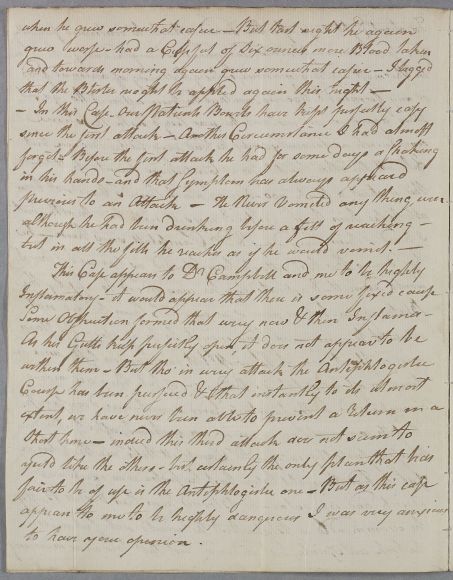 when he grew somewhat easier – But last night he again
grew worse – had a Cupful of Six ounces more Blood taken
and towards morning again grew somewhat easier – I begged
that the Blister might be applied again this Night –
– In this Case Our Patients Bowels have kept perfectly easy
since the first attack – Another Circumstance I had almost
forgot – Before the first attack he had for some days a Shaking
in his hands – and that Symptom has always appeared
previous to an Attack – He Never Vomited any thing, even
although he had been drinking before a fitt of reaching –
but in all the fitts he reaches as if he would vomit. –
This Case appears to Dr. Campbell and me to be highly
Inflammatory – it would appear that there is some fix'd cause
Some Obstruction formed that every now & then Inflames –
As his Gutts keep perfectly open, it does not appear to be
within them – But tho' in every attack the Antiphlogistic
Course has been pursued & that instantly to its utmost
extent, we have never been able to prevent a Return in a
Short time – indeed this third attack does not seem to
yield like the others – but certainly the only plan that bids
fair to be of use is the Antiphlogistic one – But as this case
appears to me to be highly dangerous I was very anxious
to have your opinion.